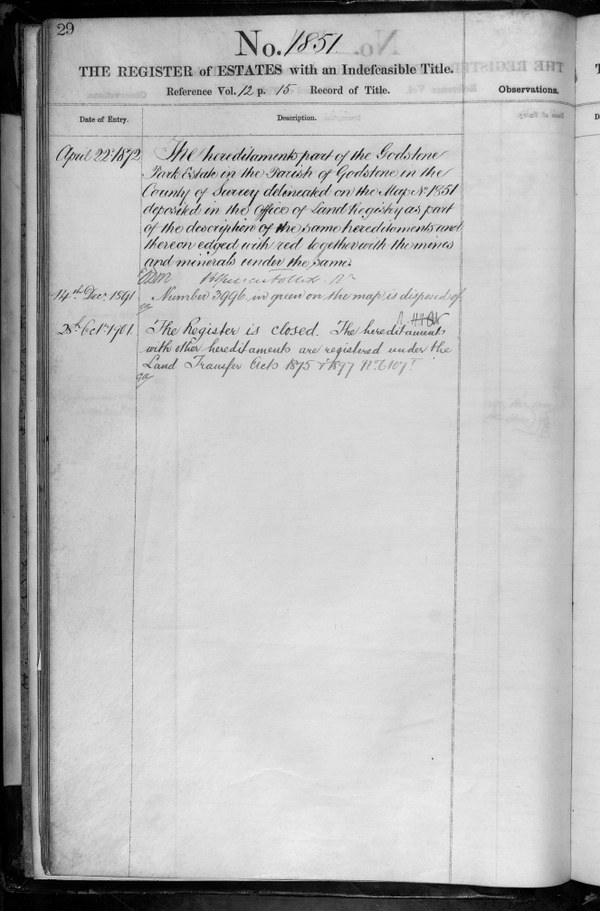 29
No. 1851
THE REGISTER of ESTATES with an Indefeasible Title.
Reference Vol. 12 p. 15 Record of Title.
Observations.
Date of Entry.
Description.
April 22d 1872
The hereditaments part of the Godstone
Park Estate in the Parish of Godstone in the
County of Surrey delineated on the Map No 1851
deposited in the Office of Land Registry as part
of the description of the same hereditaments and
thereon edged with red together with the mines
and minerals under the same.
14th Decr 1891
Number 3996 in green on the map is disposed of
The Register is closed. The hereditaments
with other hereditaments are registered under the
Land Transfer Acts 1875 & 1897 No 6107